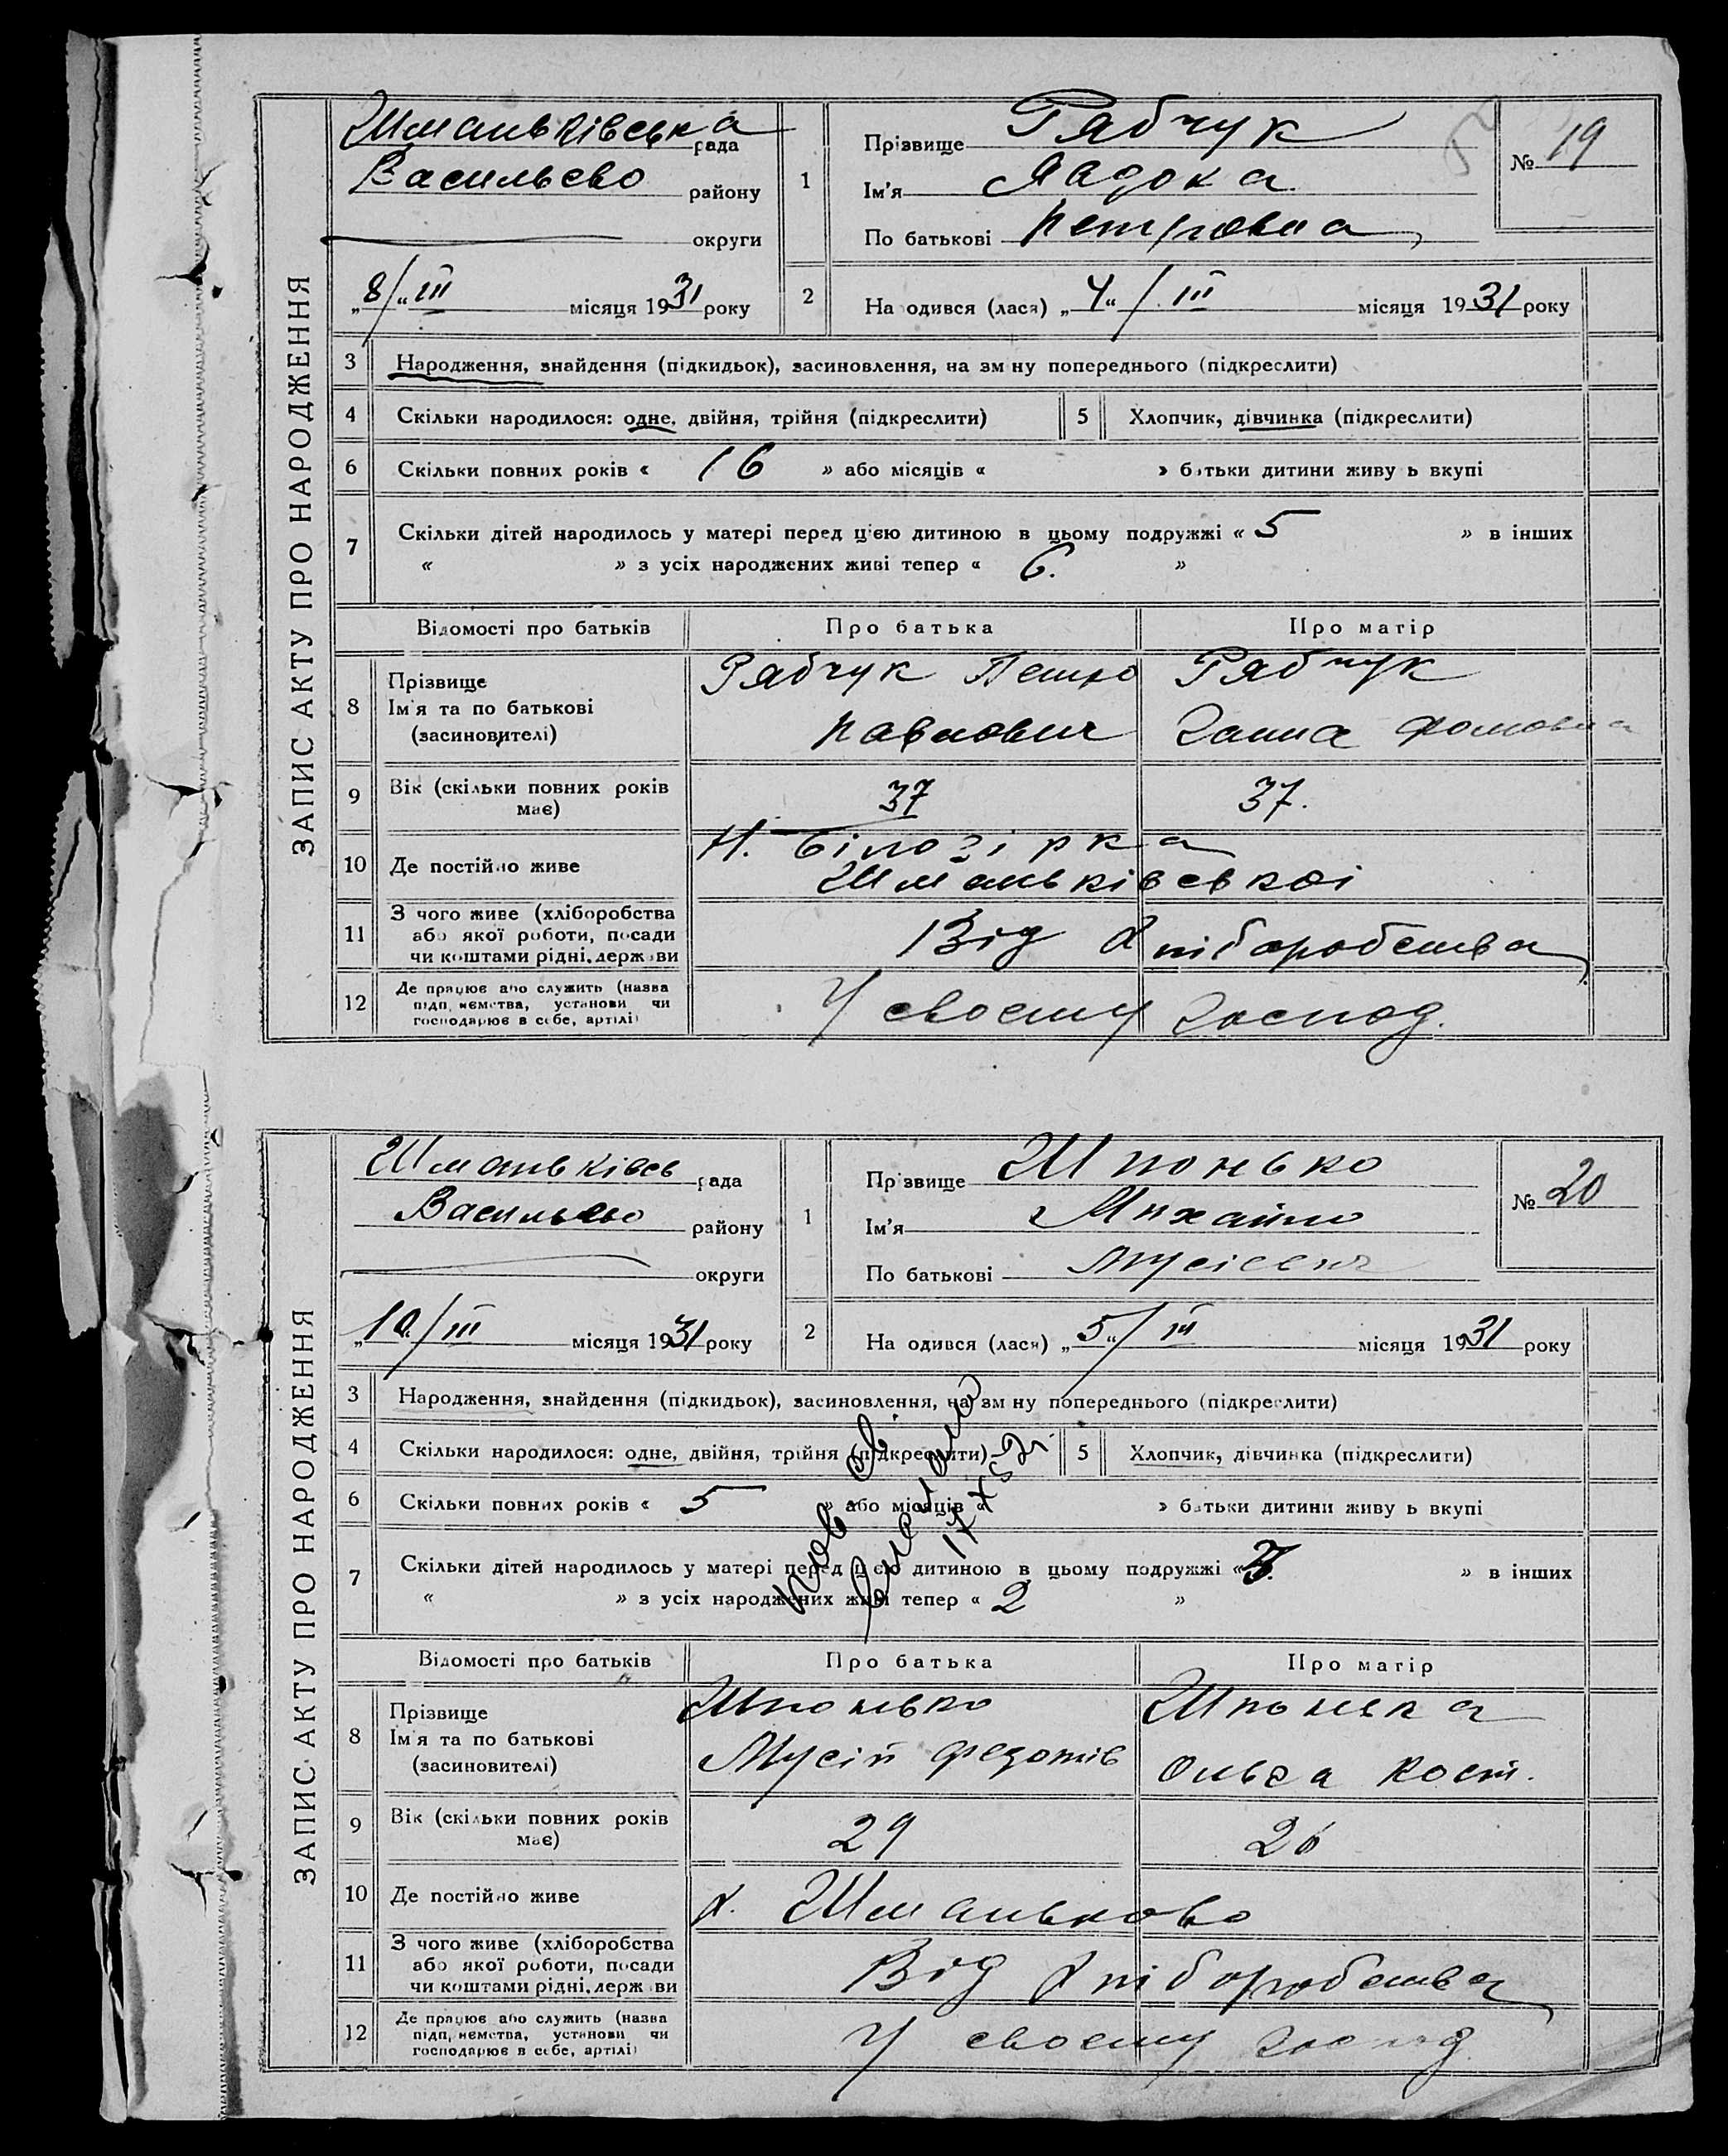 ЗАПИС АКТУ ПРО НАРОДЖЕННЯ
Шманьківська рада
Васильєво району
округи
„8/" III місяця 1931 року
1
Прізвище Рябчук
Ім'я Явдока
По батькові Петровна
№ 19
2
На одився (лася) „4"/III місяця 1931 року
3 Народження, знайдення (підкидьок), засиновлення, на зм ну попереднього (підкреслити)
4 Скільки народилося: одне, двійня, трійня (підкреслити) 5 Хлопчик, дівчинка (підкреслити)
6 Скільки повних років « 16 » або місяців « » батьки дитини живу ь вкупі
7 Скільки дітей народилось у матері перед цією дитиною в цьому подружжі « 5 » в інших
« » з усіх народжених живі тепер « 6. »
Відомості про батьків Про батька Про матір
8 Прізвище
Ім'я та по батькові
(засиновителі)
Рябчук Петро
Павлович
Рябчук
Ганна Фомовна
9 Вік (скільки повних років має) 37 37.
10 Де постійно живе Н. Білозірка
Шманьківськоі
11 З чого живе (хліборобства
або якої роботи, посади
чи коштами рідні, держ ви
Від Хліборобства
12 Де працює або служить (назва
підп, иємства, установи чи
господарює в себе, артілі)
У своєму господ.
ЗАПИС АКТУ ПРО НАРОДЖЕННЯ
Шманьківсь рада
Васильєво району
округи
„10./III місяця 1931 року
1
Прізвище Шпонько
Ім'я Михайло
По батькові Мусієвич
№ 20
2
На одився (лася) „5"/III місяця 1931 року
3 Народження, знайдення (підкидьок), засиновлення, на зм ну попереднього (підкреслити)
4 Скільки народилося: одне, двійня, трійня (підкреслити) 5 Хлопчик, дівчинка (підкреслити)
6 Скільки повних років « 5 » або місяців « » батьки дитини живу ь вкупі
7 Скільки дітей народилось у матері перед цією дитиною в цьому подружжі « » в інших
« » з усіх народжених живі тепер « 2 »
Відомості про батьків Про батька Про матір
8 Прізвище
Ім'я та по батькові
(засиновителі)
Шпонько
Мусій Федотів
Шпонька
Ольга Кост.
9 Вік (скільки повних років має) 29 26
10 Де постійно живе х. Шманьково
11 З чого живе (хліборобства
або якої роботи, посади
чи коштами рідні, держ ви
Від Хліборобства
12 Де працює або служить (назва
підп, иємства, установи чи
господарює в себе, артілі)
У своєму господ.